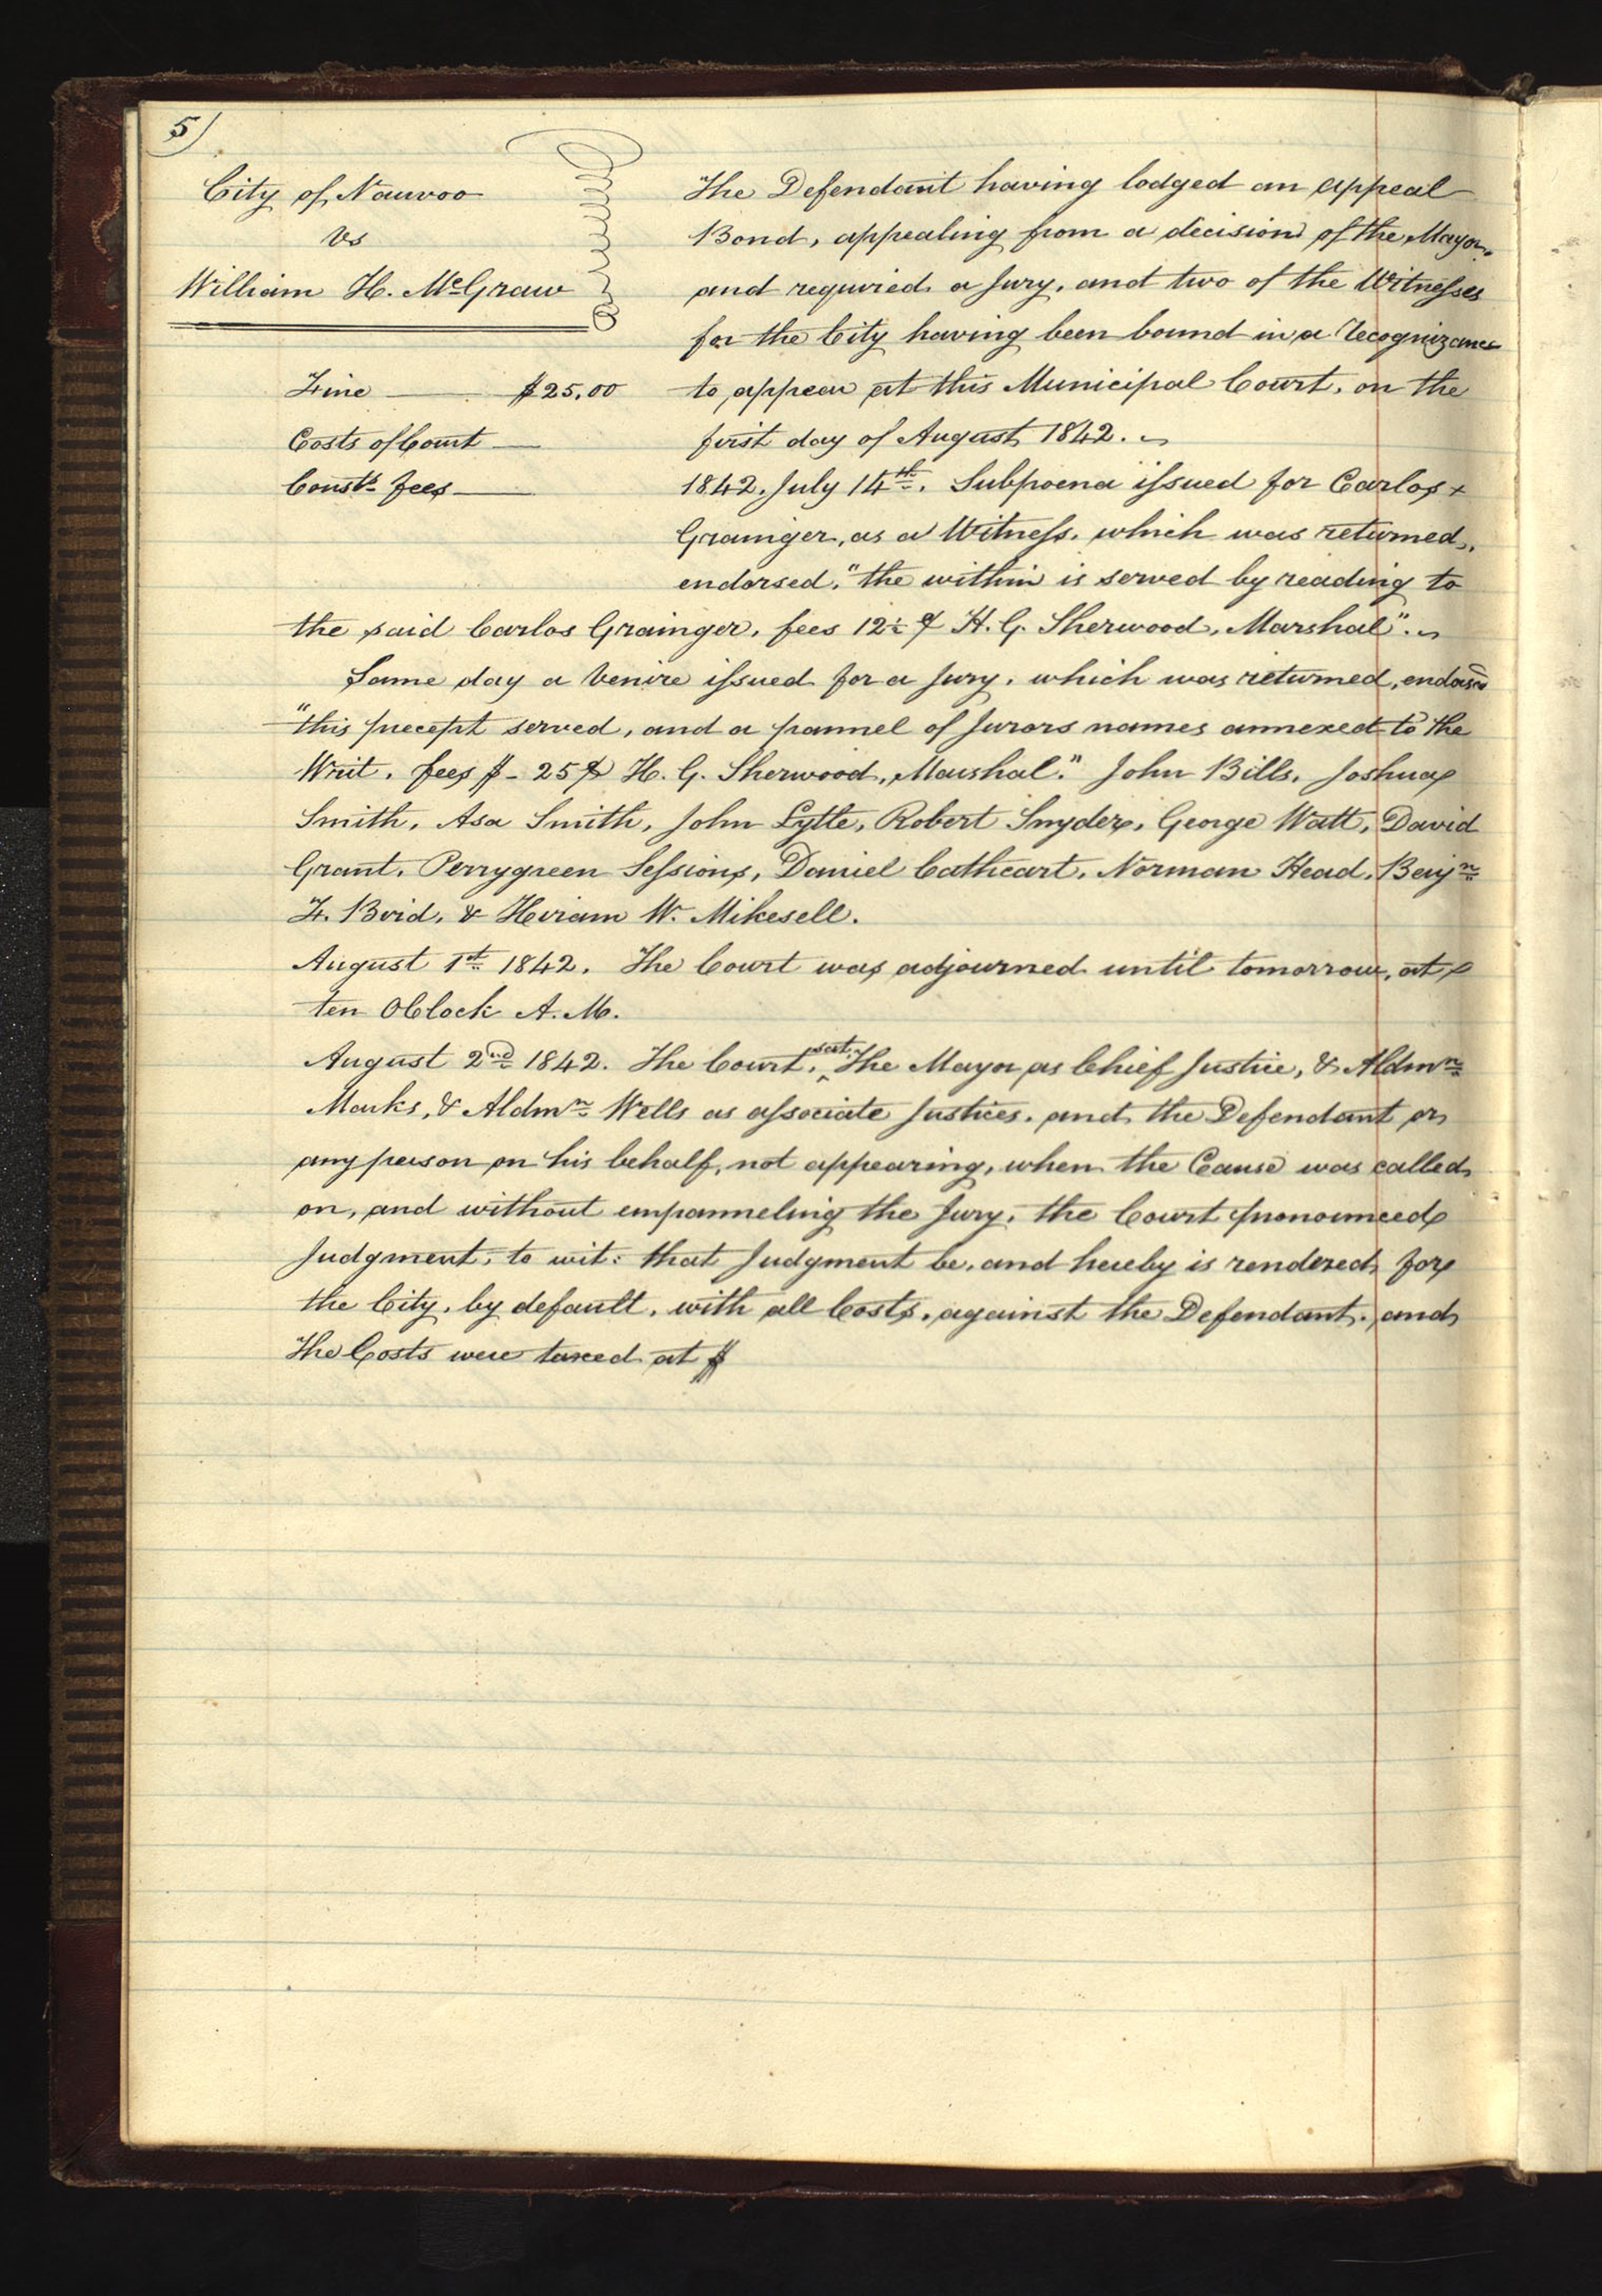 5
City of Nauvoo
vs
William H. McGraw
Fine $25,00
Costs of Court
Consts. fees
The Defendant having lodged an appeal
Bond, appealing from a decision of the Mayor,
and required a Jury, and two of the Witnesses
for the City having been bound in a recognizance
to appear at this Municipal Court, on the
first day of August 1842.
1842, July 14th. Subpoena issued for Carlos
Grainger, as a Witness, which was returned,
endorsed, "the within is served by reading to
the said Carlos Grainger, fees 12½ ¢ H. G. Sherwood, Marshal".
Same day a Venire issued for a Jury, which was returned, endorsed
"this precept served, and a pannel of Jurors names annexed to the
Writ. fees $ - 25 ¢ H. G. Sherwood, Marshal." John Bills, Joshua
Smith, Asa Smith, John Lytle, Robert Snyder, George Watt, David
Grant, Perrygreen Sessions, Daniel Cathcart, Norman Head, Benjn.
F. Boid, & Hiram W. Mikesell.
August 1st 1842. The Court was adjourned until tomorrow, at
ten OClock A.M.
August 2nd 1842. The Court, sat. The Mayor as Chief Justice, & Aldmn.
Marks, & Aldmn. Wells as associate Justices, and the Defendant or
any person on his behalf, not appearing, when the Cause was called
on, and without empanneling the Jury, the Court pronounced
Judgment, to wit: that Judgment be, and hereby is rendered for
the City, by default, with all Costs, against the Defendant. and
The Costs were taxed at $